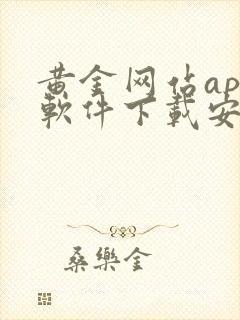 黄金网佔ap
軟件下載安
桑樂金